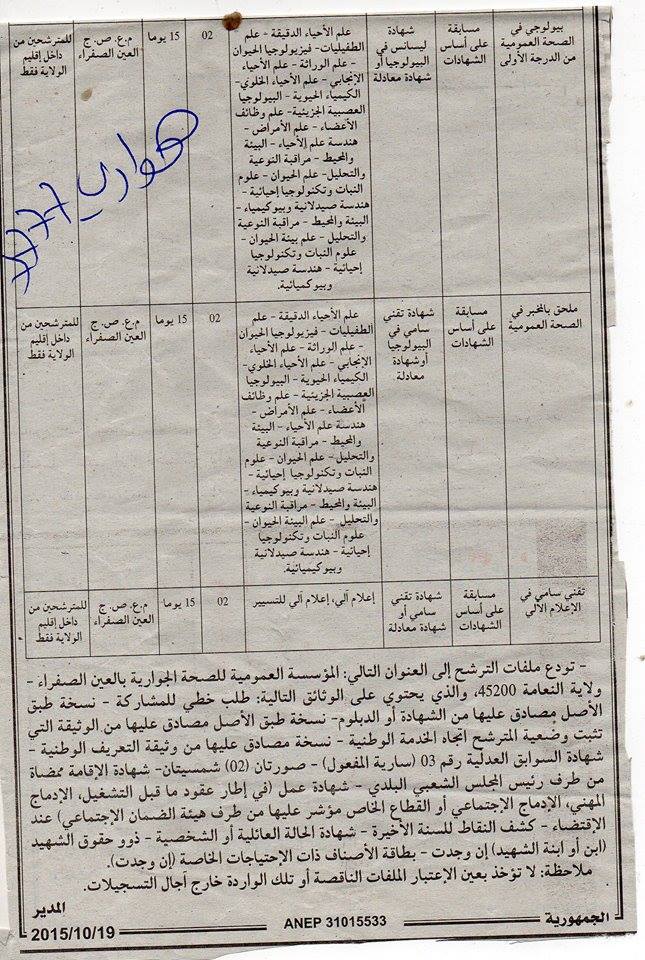 بيولوجي في
الصحة العمومية
من الدرجة الأولى
مسابقة
على أساس
الشهادات
شهادة
ليسانس في
البيولوجيا أو
شهادة معادلة
علم الأحياء الدقيقة - علم
الطفيليات - فيزيولوجيا الحيوان
- علم الوراثة - علم الأحياء
الإنجابي - علم الأحياء الخلوي-
الكيمياء الحيوية - البيولوجيا
العصبية الجزيئية- علم وظائف
الأعضاء - علم الأمراض -
هندسة علم الأحياء - البيئة
والمحيط - مراقبة النوعية
والتحليل- علم الحيوان - علوم
النبات وتكنولوجيا إحيائية -
هندسة صيدلانية وبيوكيمياء -
البيئة والمحيط - مراقبة النوعية
والتحليل - علم بيئة الحيوان -
علوم النبات وتكنولوجيا
إحيائية - هندسة صيدلانية
وبيوكميائية.
02
15 يوما
م.ع. ص. ج
العين الصفراء
للمترشحين من
داخل إقليم
الولاية فقط
هواري
ملحق بالمخبر في
الصحة العمومية
مسابقة
على أساس
الشهادات
شهادة تقني
سامي في
البيولوجيا
أوشهادة
معادلة
علم الأحياء الدقيقة - علم
الطفيليات - فيزيولوجيا الحيوان
- علم الوراثة - علم الأحياء
الإنجابي - علم الأحياء الخلوي-
الكيمياء الحيوية - البيولوجيا
العصبية الجزيئية - علم وظائف
الأعضاء - علم الأمراض -
هندسة علم الأحياء - البيئة
والمحيط - مراقبة النوعية
والتحليل - علم الحيوان - علوم
النبات وتكنولوجيا إحيائية -
هندسة صيدلانية وبيوكيمياء -
البيئة والمحيط - مراقبة النوعية
والتحليل - علم البيئة الحيوان -
علوم النبات وتكنولوجيا
إحيائية - هندسة صيدلانية
وبيوكيميائية.
02
15 يوما
م.ع. ص. ج
العين الصفراء
للمترشحين من
داخل إقليم
الولاية فقط
تقني سامي في
الإعلام الآلي
مسابقة
على أساس
الشهادات
شهادة تقني
سامي أو
شهادة معادلة
إعلام آلي، إعلام آلي للتسيير
02
15 يوما
م.ع. ص. ج
العين الصفراء
للمترشحين من
داخل إقليم
الولاية فقط
- تودع ملفات الترشح إلى العنوان التالي: المؤسسة العمومية للصحة الجوارية بالعين الصفراء -
ولاية النعامة 45200، والذي يحتوي على الوثائق التالية: طلب خطي للمشاركة - نسخة طبق
الأصل مصادق عليها من الشهادة أو الدبلوم- نسخة طبق الأصل مصادق عليها من الوثيقة التي
تثبت وضعية المترشح اتجاه الخدمة الوطنية - نسخة مصادق عليها من وثيقة التعريف الوطنية -
شهادة السوابق العدلية رقم 03 (سارية المفعول) - صورتان (02) شمسيتان- شهادة الإقامة ممضاة
من طرف رئيس المجلس الشعبي البلدي - شهادة عمل (في إطار عقود ما قبل التشغيل، الإدماج
المهني، الإدماج الإجتماعي أو القطاع الخاص مؤشر عليها من طرف هيئة الضمان الإجتماعي) عند
الإقتضاء - كشف النقاط للسنة الأخيرة - شهادة الحالة العائلية أو الشخصية - ذوو حقوق الشهيد
(ابن أو ابنة الشهيد) إن وجدت - بطاقة الأصناف ذات الإحتياجات الخاصة (إن وجدت).
ملاحظة: لا تؤخذ بعين الإعتبار الملفات الناقصة أو تلك الواردة خارج آجال التسجيلات.
المدير
الجمهورية
ANEP 31015533
2015/10/19